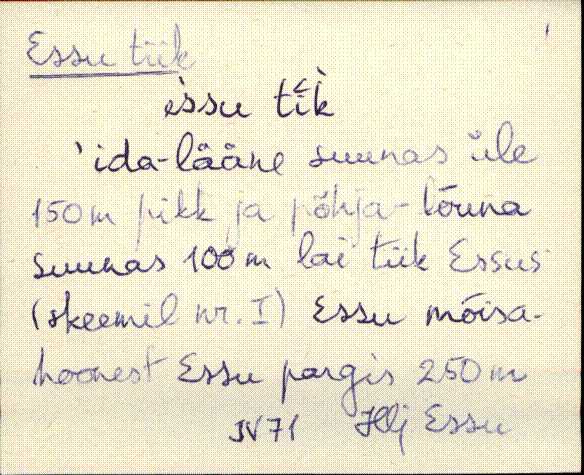 Essu tiik
èssu tìk
'ida-lääne suunas üle
150 m pikk ja põhja-lõuna
suunas 100 m lai tiik Essus
(skeemil nr. I) Essu mõisa-
hoonest Essu pargis 250 m
JV 71 Hlj Essu